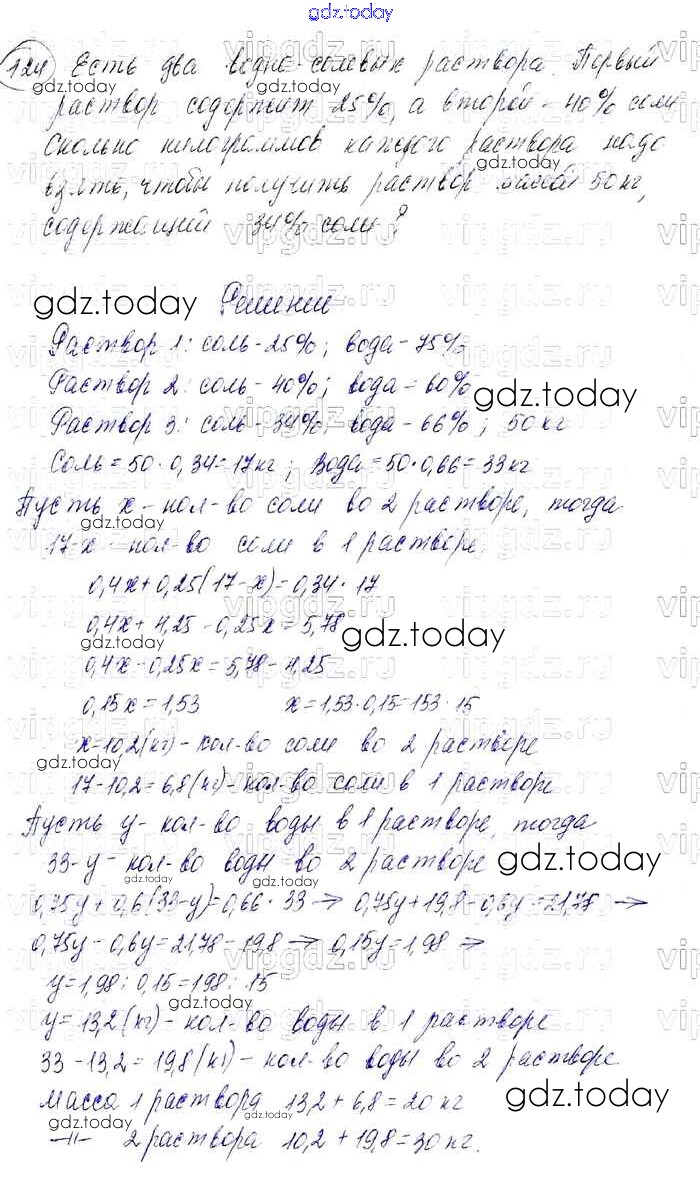 gdz.today
124 Есть два водно-солевых раствора. Первый
раствор содержит 25%, а второй - 40% соли
Сколько килограммов каждого раствора надо
взять, чтобы получить раствор массой 50 кг,
содержащий 34% соли?
gdz.today Решение
Раствор 1: соль - 25%; вода - 75%
Раствор 2: соль - 40%; вода = 60%
gdz.today
Раствор 3: соль - 34%; вода - 66%; 50 кг
Соль = 50 · 0,34 = 17 кг; Вода = 50 · 0,66 = 33 кг
Пусть x - кол-во соли во 2 растворе, тогда
17-x - кол-во соли в 1 растворе
0,4x + 0,25(17-x) = 0,34 · 17
0,4x + 4,25 - 0,25x = 5,78
gdz.today
0,4x - 0,25x = 5,78 - 4,25
0,15x = 1,53 x = 1,53 · 0,15 = 153 · 15
x = 10,2 (кг) - кол-во соли во 2 растворе
17 - 10,2 = 6,8 (кг) - кол-во соли в 1 растворе
Пусть y - кол-во воды в 1 растворе, тогда
33-y - кол-во воды во 2 растворе
gdz.today
0,75y + 0,6(33-y) = 0,66 · 33 → 0,75y + 19,8 - 0,6y = 21,78 →
0,75y - 0,6y = 21,78 - 19,8 → 0,15y = 1,98 →
y = 1,98 : 0,15 = 198 : 15
y = 13,2 (кг) - кол-во воды в 1 растворе
33 - 13,2 = 19,8 (кг) - кол-во воды во 2 растворе
Масса 1 раствора 13,2 + 6,8 = 20 кг
gdz.today
-||- 2 раствора 10,2 + 19,8 = 30 кг.